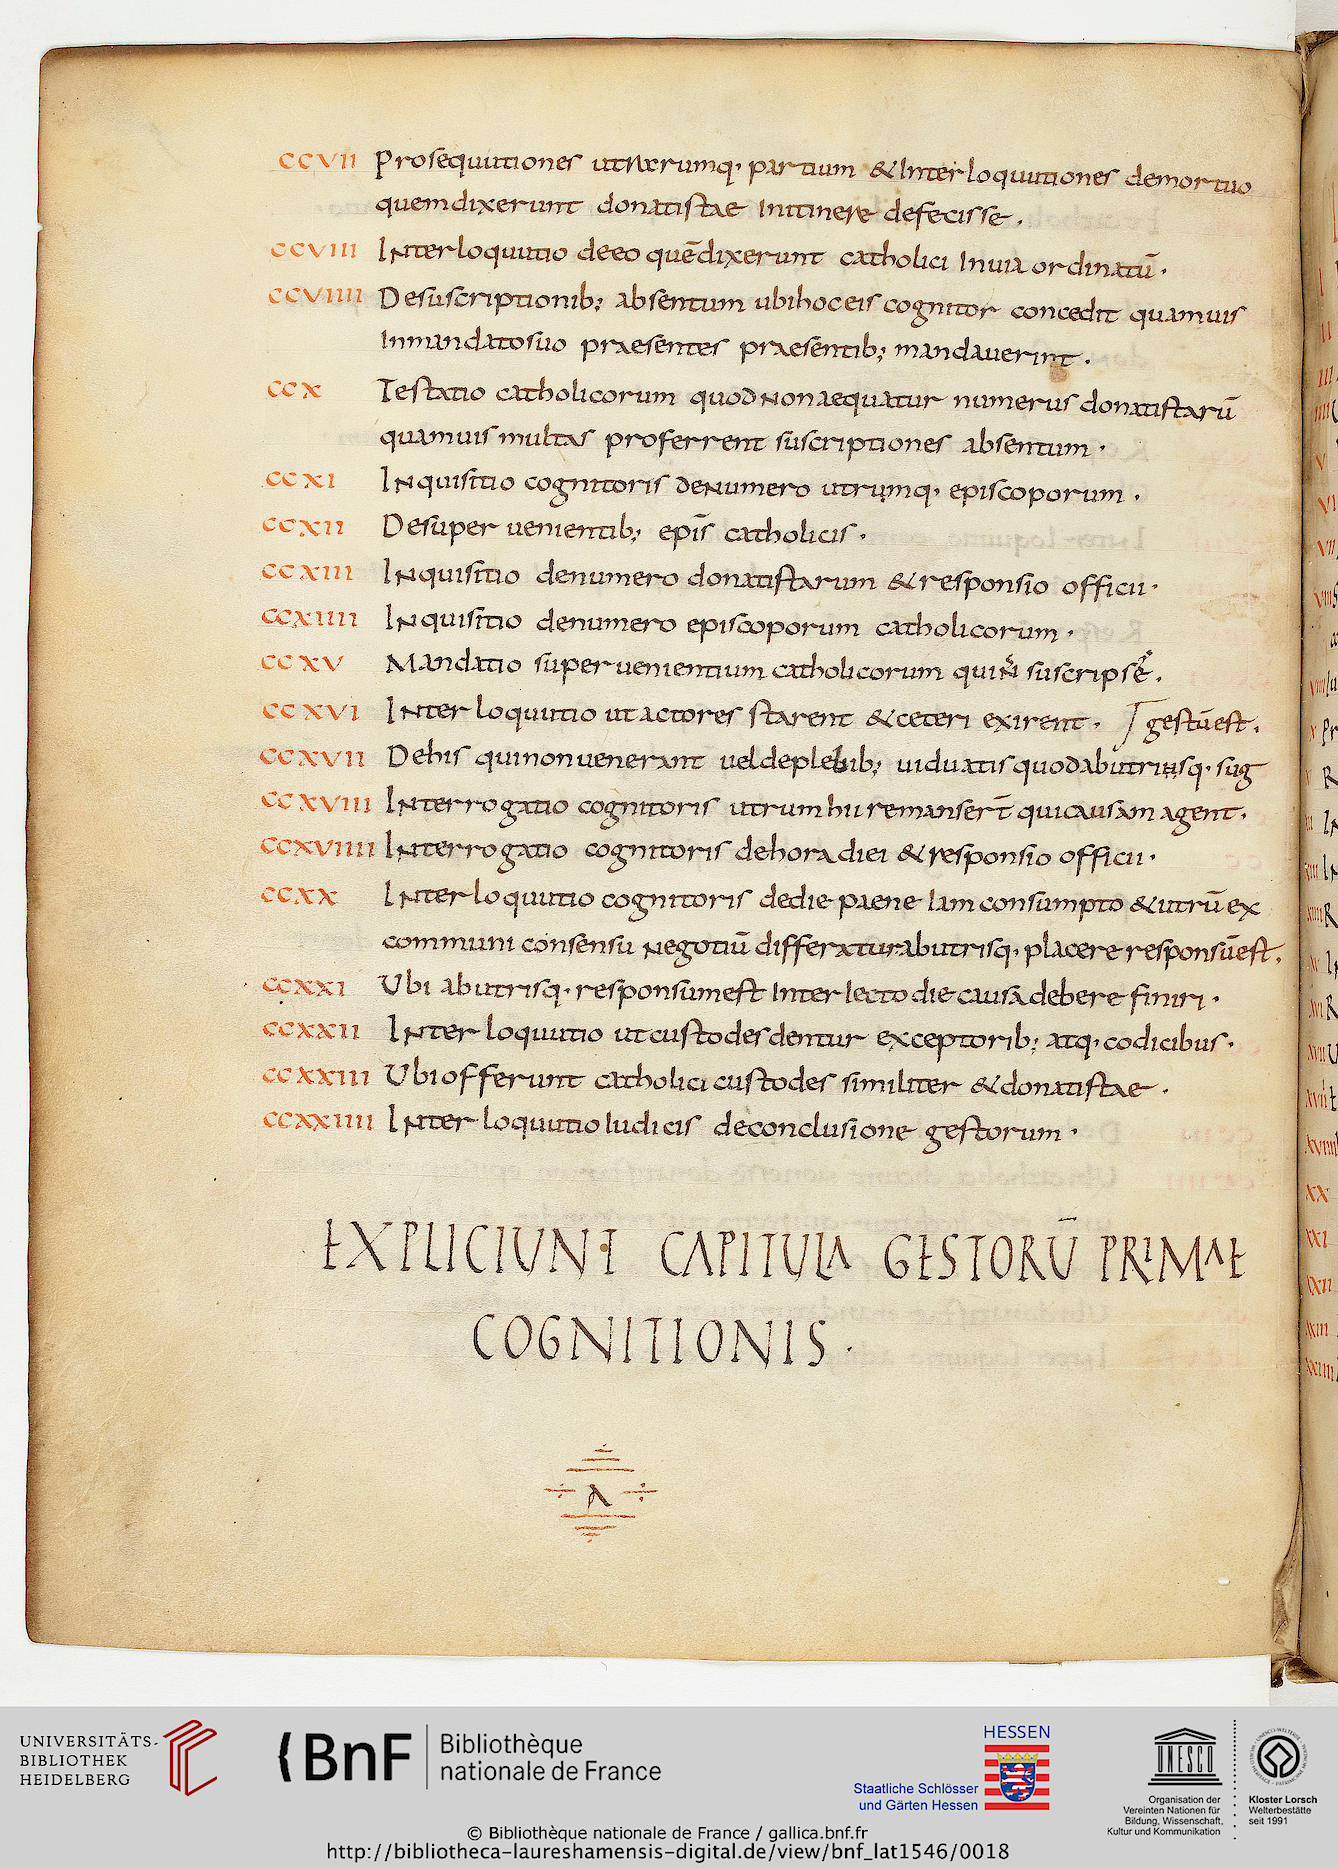 CCVII Prosequutiones utrarumq· partium & Interloquutiones demortuo
quemdixerunt donatistae Initinere defecisse.
CCVIII INterloquutio deeo quēdixerunt catholici Inuia ordinatū·
CCVIIII Desuscriptionib; absentum ubihoceis cognitor concedit quamuis
Inmandatosuo praesentes praesentib; mandauerint.
CCX Testatio catholicorum quodnonaequatur numerus donatistarū
quamuis multas proferrent suscriptiones absentum·
CCXI INquisitio cognitoris denumero utrumq· episcoporum.
CCXII Desuper uenientib; epis̄ catholicis·
CCXIII INquisitio denumero donatistarum & responsio officii·
CCXIIII INquisitio denumero episcoporum catholicorum·
CCXV Mandatio superuenientium catholicorum quiñ suscripsēr.
CCXVI INterloquutio ut actores starent & ceteri exirent. gestūest.
CCXVII Dehis quinonuenerant ueldeplebib; uiduatis quodabutriusq· sug
CCXVIII INterrogatio cognitoris utrum hii remansert̄ quicausam agent.
CCXVIIII INterrogatio cognitoris dehora diei & responsio officii·
CCXX INterloquutio cognitoris dedie paene Iam consumpto & utrū ex
communi consensu negotiū differaturabutrisq· placere responsūest.
CCXXI Ubi abutrisq· responsumest Interlecto die causa debere finiri·
CCXXII INterloquutio ut custodes dentur exceptorib; atq· codicibus·
CCXXIII Ubiofferunt catholici custodes similiter & donatistae·
CCXXIIII INterloquutio Iudicis deconclusione gestorum·
EXPLICIUNT CAPITULA GESTORŪ PRIMAE
COGNITIONIS·
A
UNIVERSITÄTS-
BIBLIOTHEK
HEIDELBERG
BnF
Bibliothèque
nationale de France
HESSEN
Staatliche Schlösser
und Gärten Hessen
UNESCO
Organisation der
Vereinten Nationen für
Bildung, Wissenschaft,
Kultur und Kommunikation
Kloster Lorsch
Welterbestätte
seit 1991
© Bibliothèque nationale de France / gallica.bnf.fr
http://bibliotheca-laureshamensis-digital.de/view/bnf_lat1546/0018